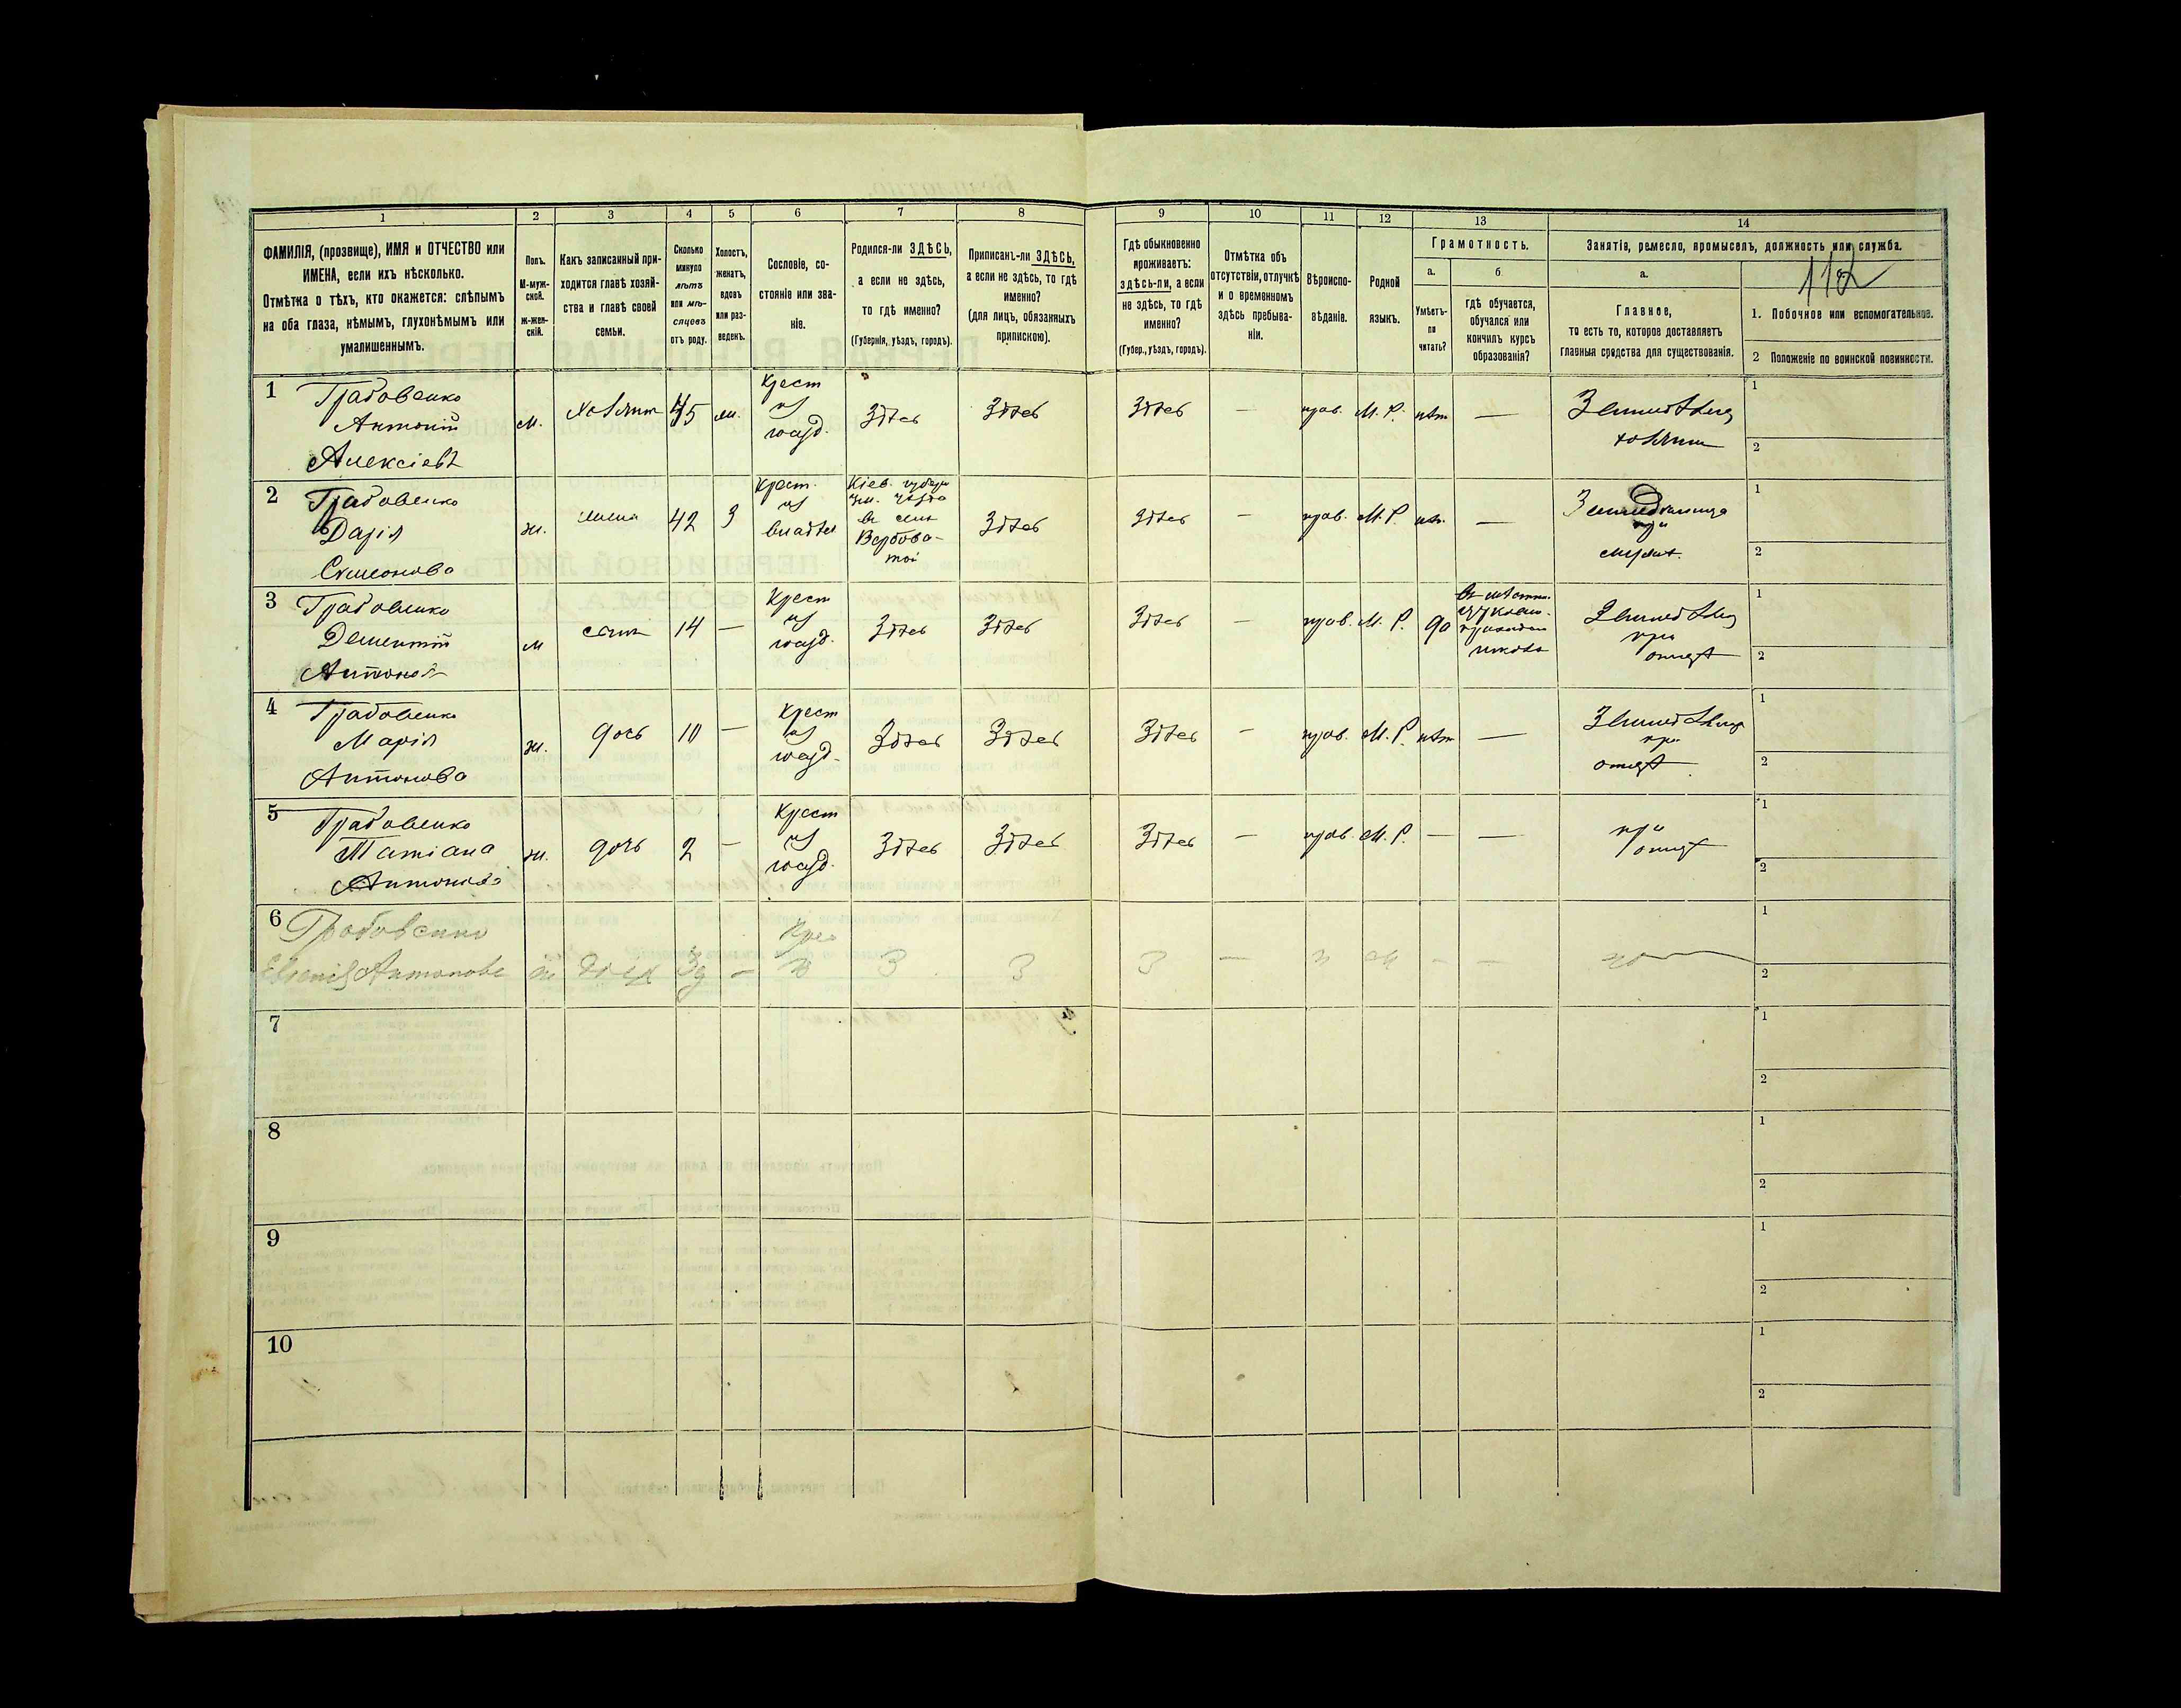 1 2 3 4 5 6 7 8 9 10 11 12 13 14
ФАМИЛІЯ, (прозвище), ИМЯ и ОТЧЕСТВО или
ИМЕНА, если ихъ нѣсколько.
Отмѣтка о тѣхъ, кто окажется: слѣпымъ
на оба глаза, нѣмымъ, глухонѣмымъ или
умалишеннымъ.
Полъ.
М-муж-
ской.
ж-жен-
скій.
Какъ записанный при-
ходится главѣ хозяй-
ства и главѣ своей
семьи.
Сколько
минуло
лѣтъ
или мѣ-
сяцевъ
отъ роду.
Холостъ,
женатъ,
вдовъ
или раз-
веденъ.
Сословіе, со-
стояніе или зва-
ніе.
Родился-ли ЗДѢСЬ,
а если не здѣсь,
то гдѣ именно?
(Губернія, уѣздъ, городъ).
Приписанъ-ли ЗДѢСЬ,
а если не здѣсь, то гдѣ
именно?
(для лицъ, обязанныхъ
припискою).
Гдѣ обыкновенно
проживаетъ:
здѣсь-ли, а если
не здѣсь, то гдѣ
именно?
(Губер., уѣздъ, городъ).
Отмѣтка объ
отсутствіи, отлучкѣ
и о временномъ
здѣсь пребыва-
ніи.
Вѣроиспо-
вѣданіе.
Родной
языкъ.
Грамотность.
а.
Умѣетъ-
ли
читать?
б.
гдѣ обучается,
обучался или
кончилъ курсъ
образованія?
Занятія, ремесло, промыселъ, должность или служба.
а.
Главное,
то есть то, которое доставляетъ
главныя средства для существованія.
112
1. Побочное или вспомогательное.
2 Положеніе по воинской повинности.
1
Грабовенко
Антоній
Алексіевъ
м.
хозяин
45
Крест
из
госуд.
Здѣсь
Здѣсь
Здѣсь
—
прав.
М. Р.
нѣт
—
хозяин
1
2
2
Грабовенко
Дарія
Симеонова
ж.
жена
42
З
Крест.
из
владѣл
Кіев. губер
Зв. уѣзда
въ селѣ
Вербова-
той
Здѣсь
Здѣсь
—
прав.
М. Р.
нѣт.
—
при
1
2
3
Грабовенко
Дементій
Антонов
м
сын
14
—
Крест
из
госуд.
Здѣсь
Здѣсь
Здѣсь
—
прав.
М. Р.
да
школѣ
при
отцѣ
1
2
4
Грабовенко
Марія
Антонова
ж.
дочь
10
—
Крест
из
госуд.
Здѣсь
Здѣсь
Здѣсь
—
прав.
М. Р.
нѣт
—
при
отцѣ
1
2
5
Грабовенко
Татіана
Антонова
ж.
дочь
2
—
Крест
из
госуд.
Здѣсь
Здѣсь
Здѣсь
—
прав.
М. Р.
—
—
при
отцѣ
1
2
6
Грабовенко
Антонова
ж
—
Крес
З
З
З
—
п
м
—
—
1
2
7
1
2
8
1
2
9
1
2
10
1
2